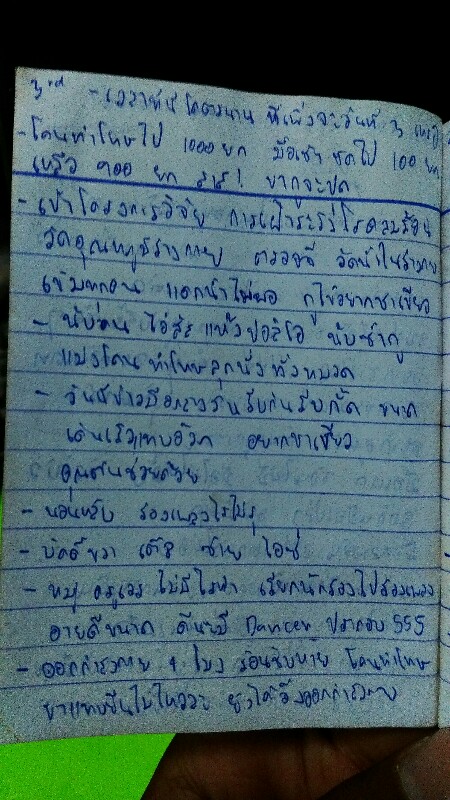 3rd - เวลาที่นี่ โคตรนาน นี่เพิ่งจะวันที่ 3 เหรอ
- โดนทำโทษไป 1000 ยก มื้อเช้า ซัดไป 100 ยก
เหลือ 900 ยก
- เข้าโครงการวิจัย การเฝ้าระวังโรคลมร้อน
วัดอุณหภูมิร่างกาย ตรวจฉี่ วัดน้ำในร่างกาย
เข้มทุกคน แดกน้ำไม่พอ กูไม่อยากชาเขียว
- นับ
แม่งโดนทำโทษลุกนั่งทั้งหมวด
- วันนี้ข้าวมื้อกลางวันรีบกินรีบกลั้ว ขนาด
เดินเร็วแทบอ้วก อยากชาเขียว
ช่วยด้วย
- นอนหลับ ร้องเพลงไรไม่รู้
- บัดดี้ขวา เต้ย ซ้าย ไอซ์
- หมู่ ไม่มีไรทำ เรียกนักร้องไปร้องเพลง
ดีนะมี Dancer ประกอบ 555
- ออกกำลังกาย 4 โมง ร้อนชิบหาย โดนทำโทษ
ขาแทบยืนไม่ไหว ยังได้วิ่งออกกำลังกาย